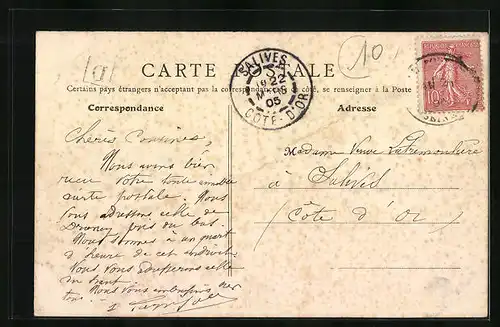 [a]
10
CARTE ALE
Certains pays étrangers n'acceptant pas la correspondance côté, se renseigner à la Poste
SALIVES
22
05
COTE-D'OR
Correspondance
Adresse
Chères Cousines,
Nous avons bien
reçu votre toute aimable
carte postale. Nous
vous adressons celle de
pris du bas.
Nous sommes à un quart
d'heure de cet endroit.
Nous vous celle
Nous vous embrassons
Madame Veuve
à Salives
(Côte d'Or)